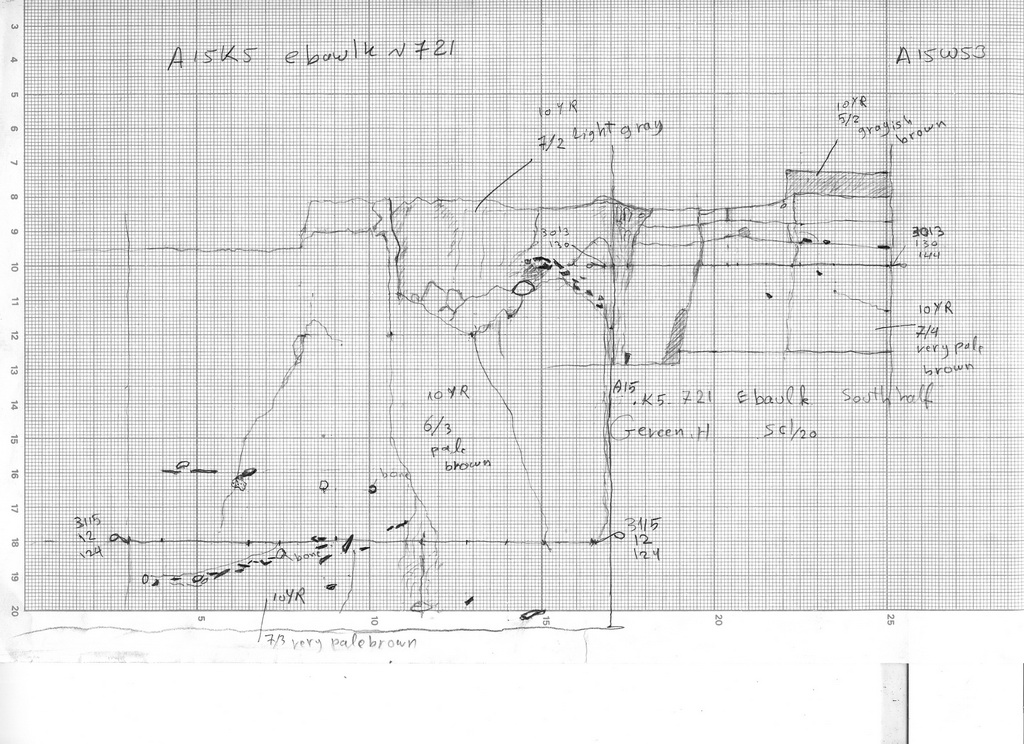 A15K5 ebawlk N721
A15W53
10YR
7/2 Light gray
10YR
5/2 grayish
brown
3013
130
3013
130
144
10YR
7/4
very pale
brown
A15
.K5. 721 Ebaulk South half
Gereen.H SC1/20
10YR
6/3
pale
brown
bone
3115
12
124
3115
12
124
bone
10YR
7/3 very pale brown
3
4
5
6
7
8
9
10
11
12
13
14
15
16
17
18
19
20
5
10
15
20
25